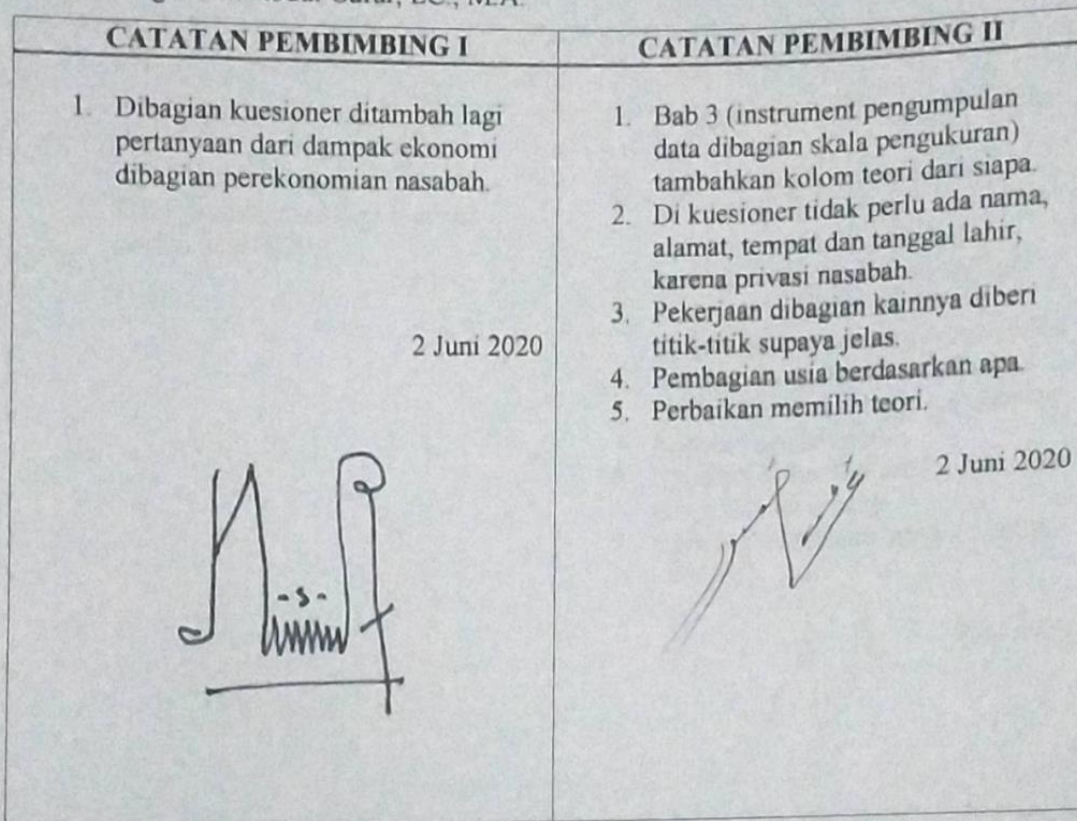 CATATAN PEMBIMBING I
1. Dibagian kuesioner ditambah lagi
pertanyaan dari dampak ekonomi
dibagian perekonomian nasabah.
2 Juni 2020
-s-
CATATAN PEMBIMBING II
1. Bab 3 (instrument pengumpulan
data dibagian skala pengukuran)
tambahkan kolom teori dari siapa.
2. Di kuesioner tidak perlu ada nama,
alamat, tempat dan tanggal lahir,
karena privasi nasabah.
3. Pekerjaan dibagian kainnya diberi
titik-titik supaya jelas.
4. Pembagian usia berdasarkan apa.
5. Perbaikan memilih teori.
2 Juni 2020